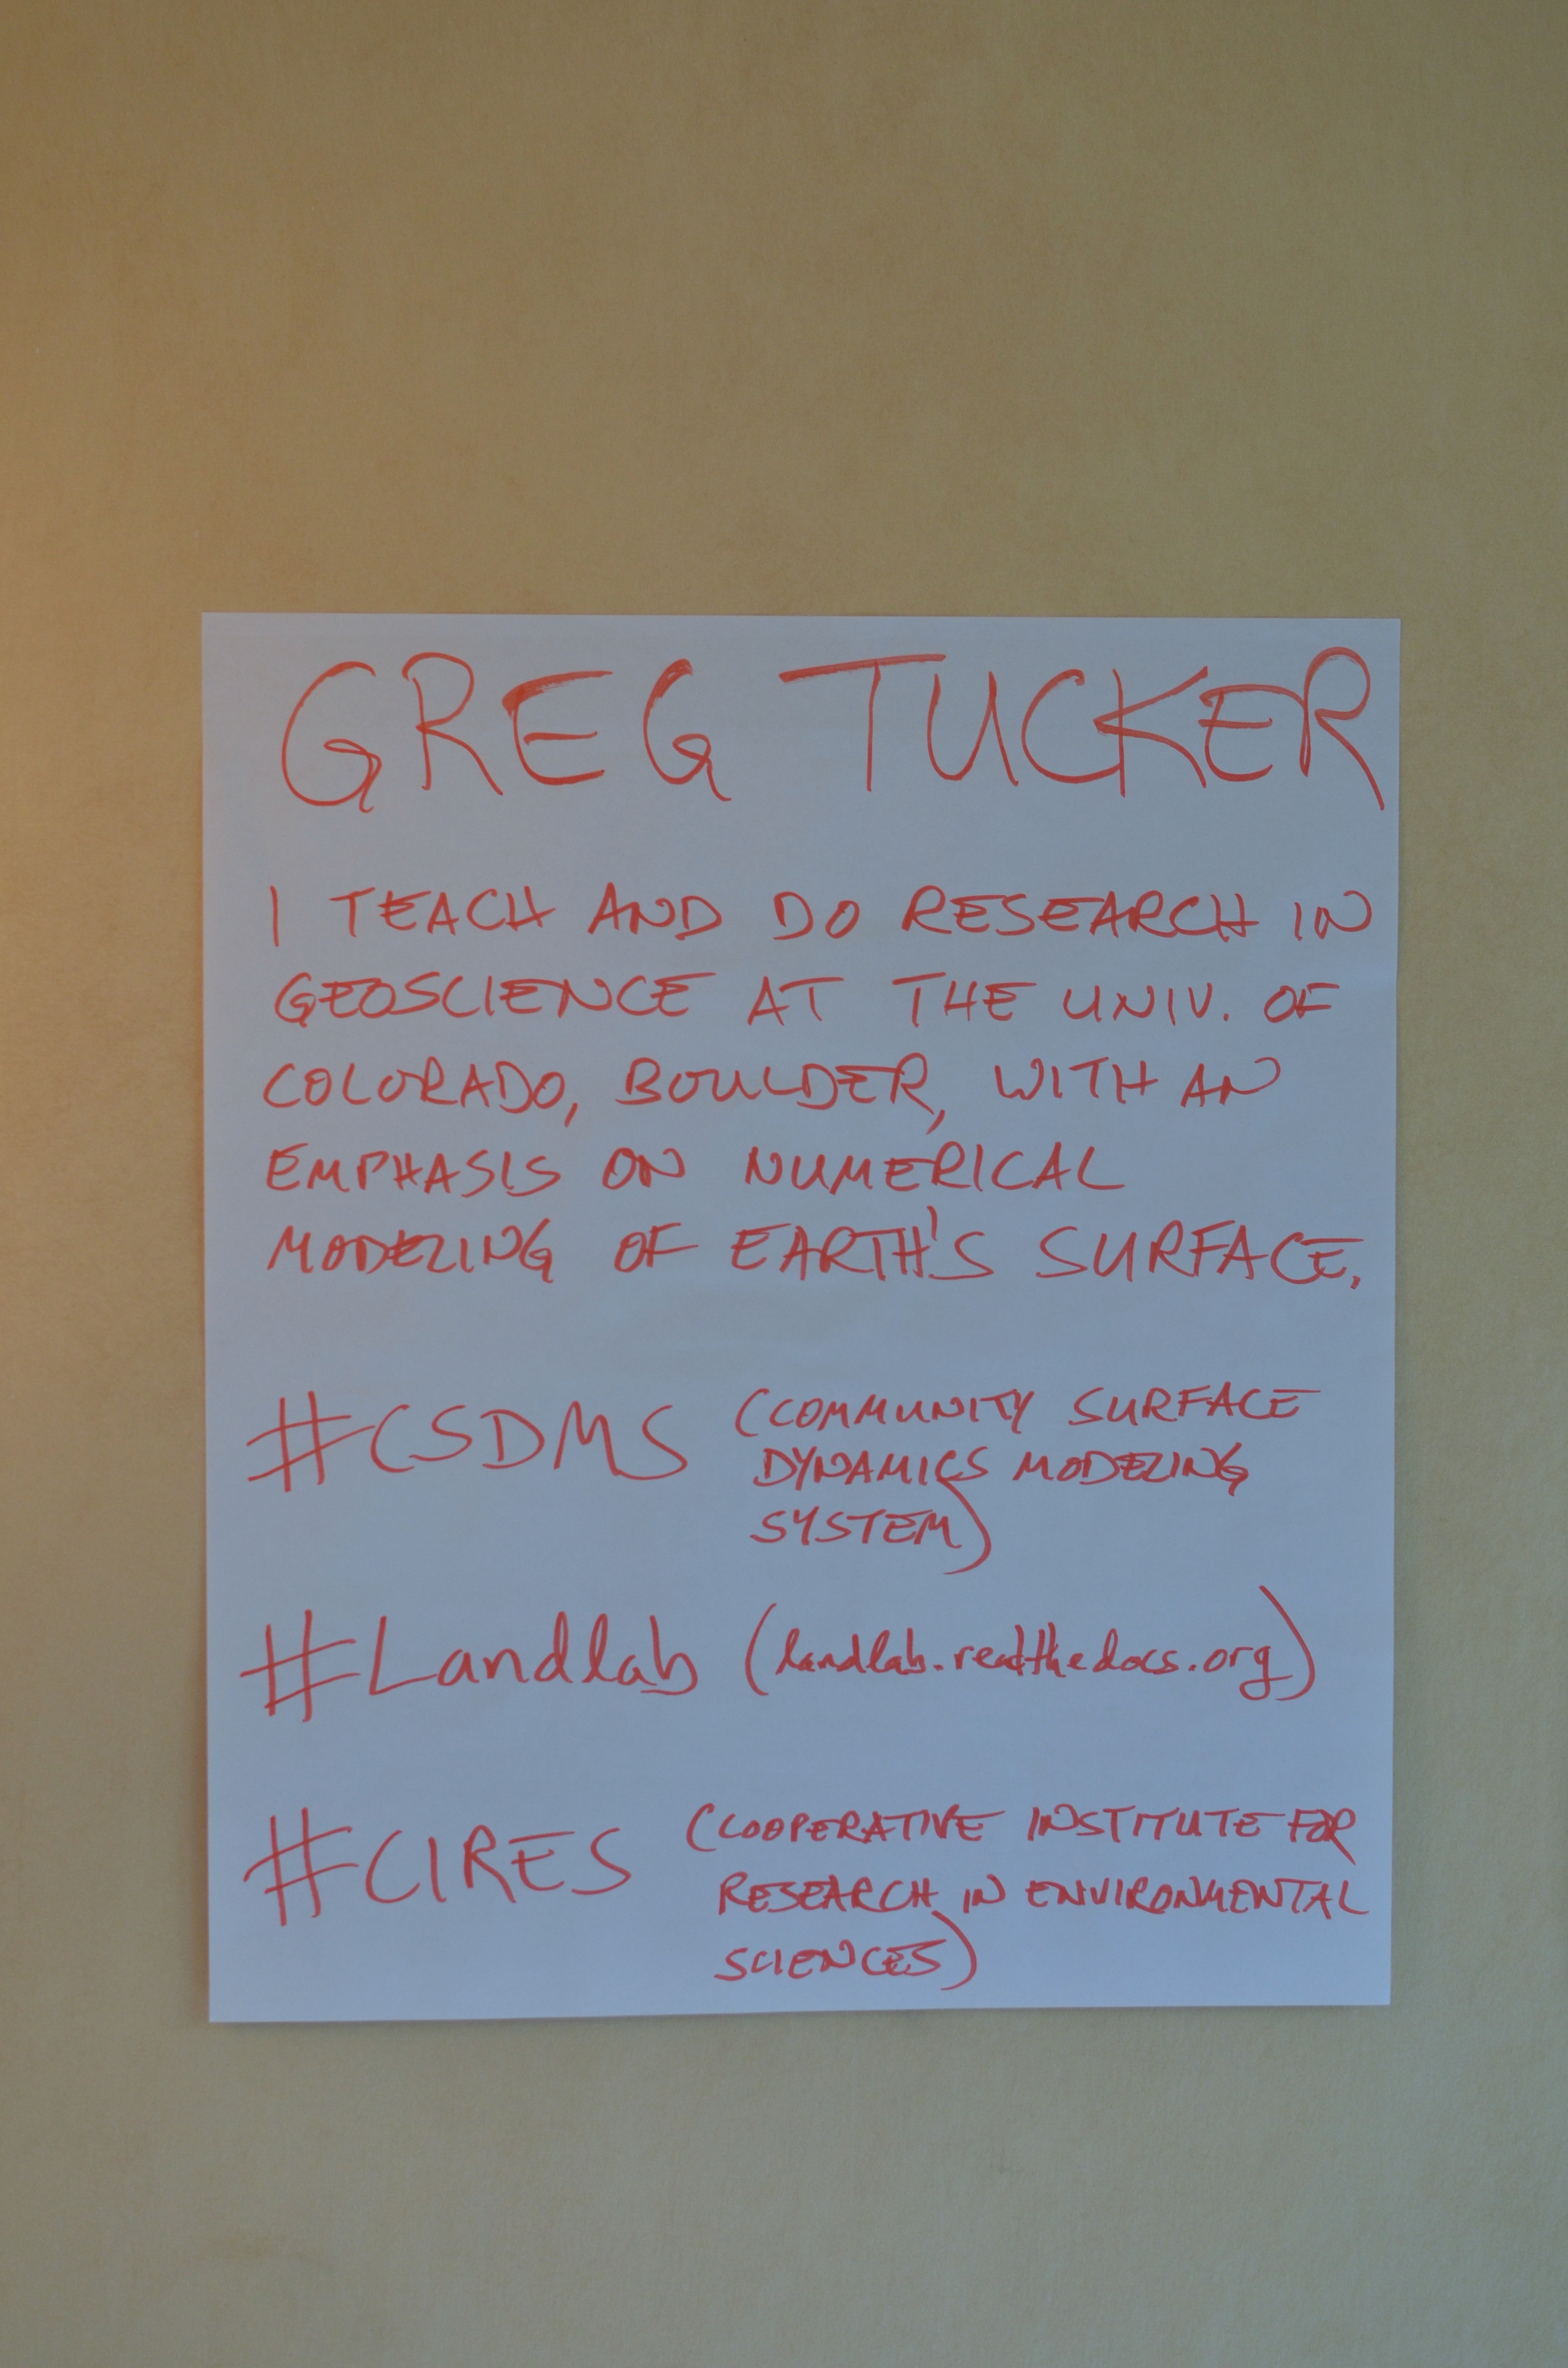 GREG TUCKER
I TEACH AND DO RESEARCH IN
GEOSCIENCE AT THE UNIV. OF
COLORADO, BOULDER, WITH AN
EMPHASIS ON NUMERICAL
MODELING OF EARTH'S SURFACE.
#CSDMS (COMMUNITY SURFACE
DYNAMICS MODELING
SYSTEM)
#Landlab (landlab.readthedocs.org)
#CIRES (COOPERATIVE INSTITUTE FOR
RESEARCH IN ENVIRONMENTAL
SCIENCES)